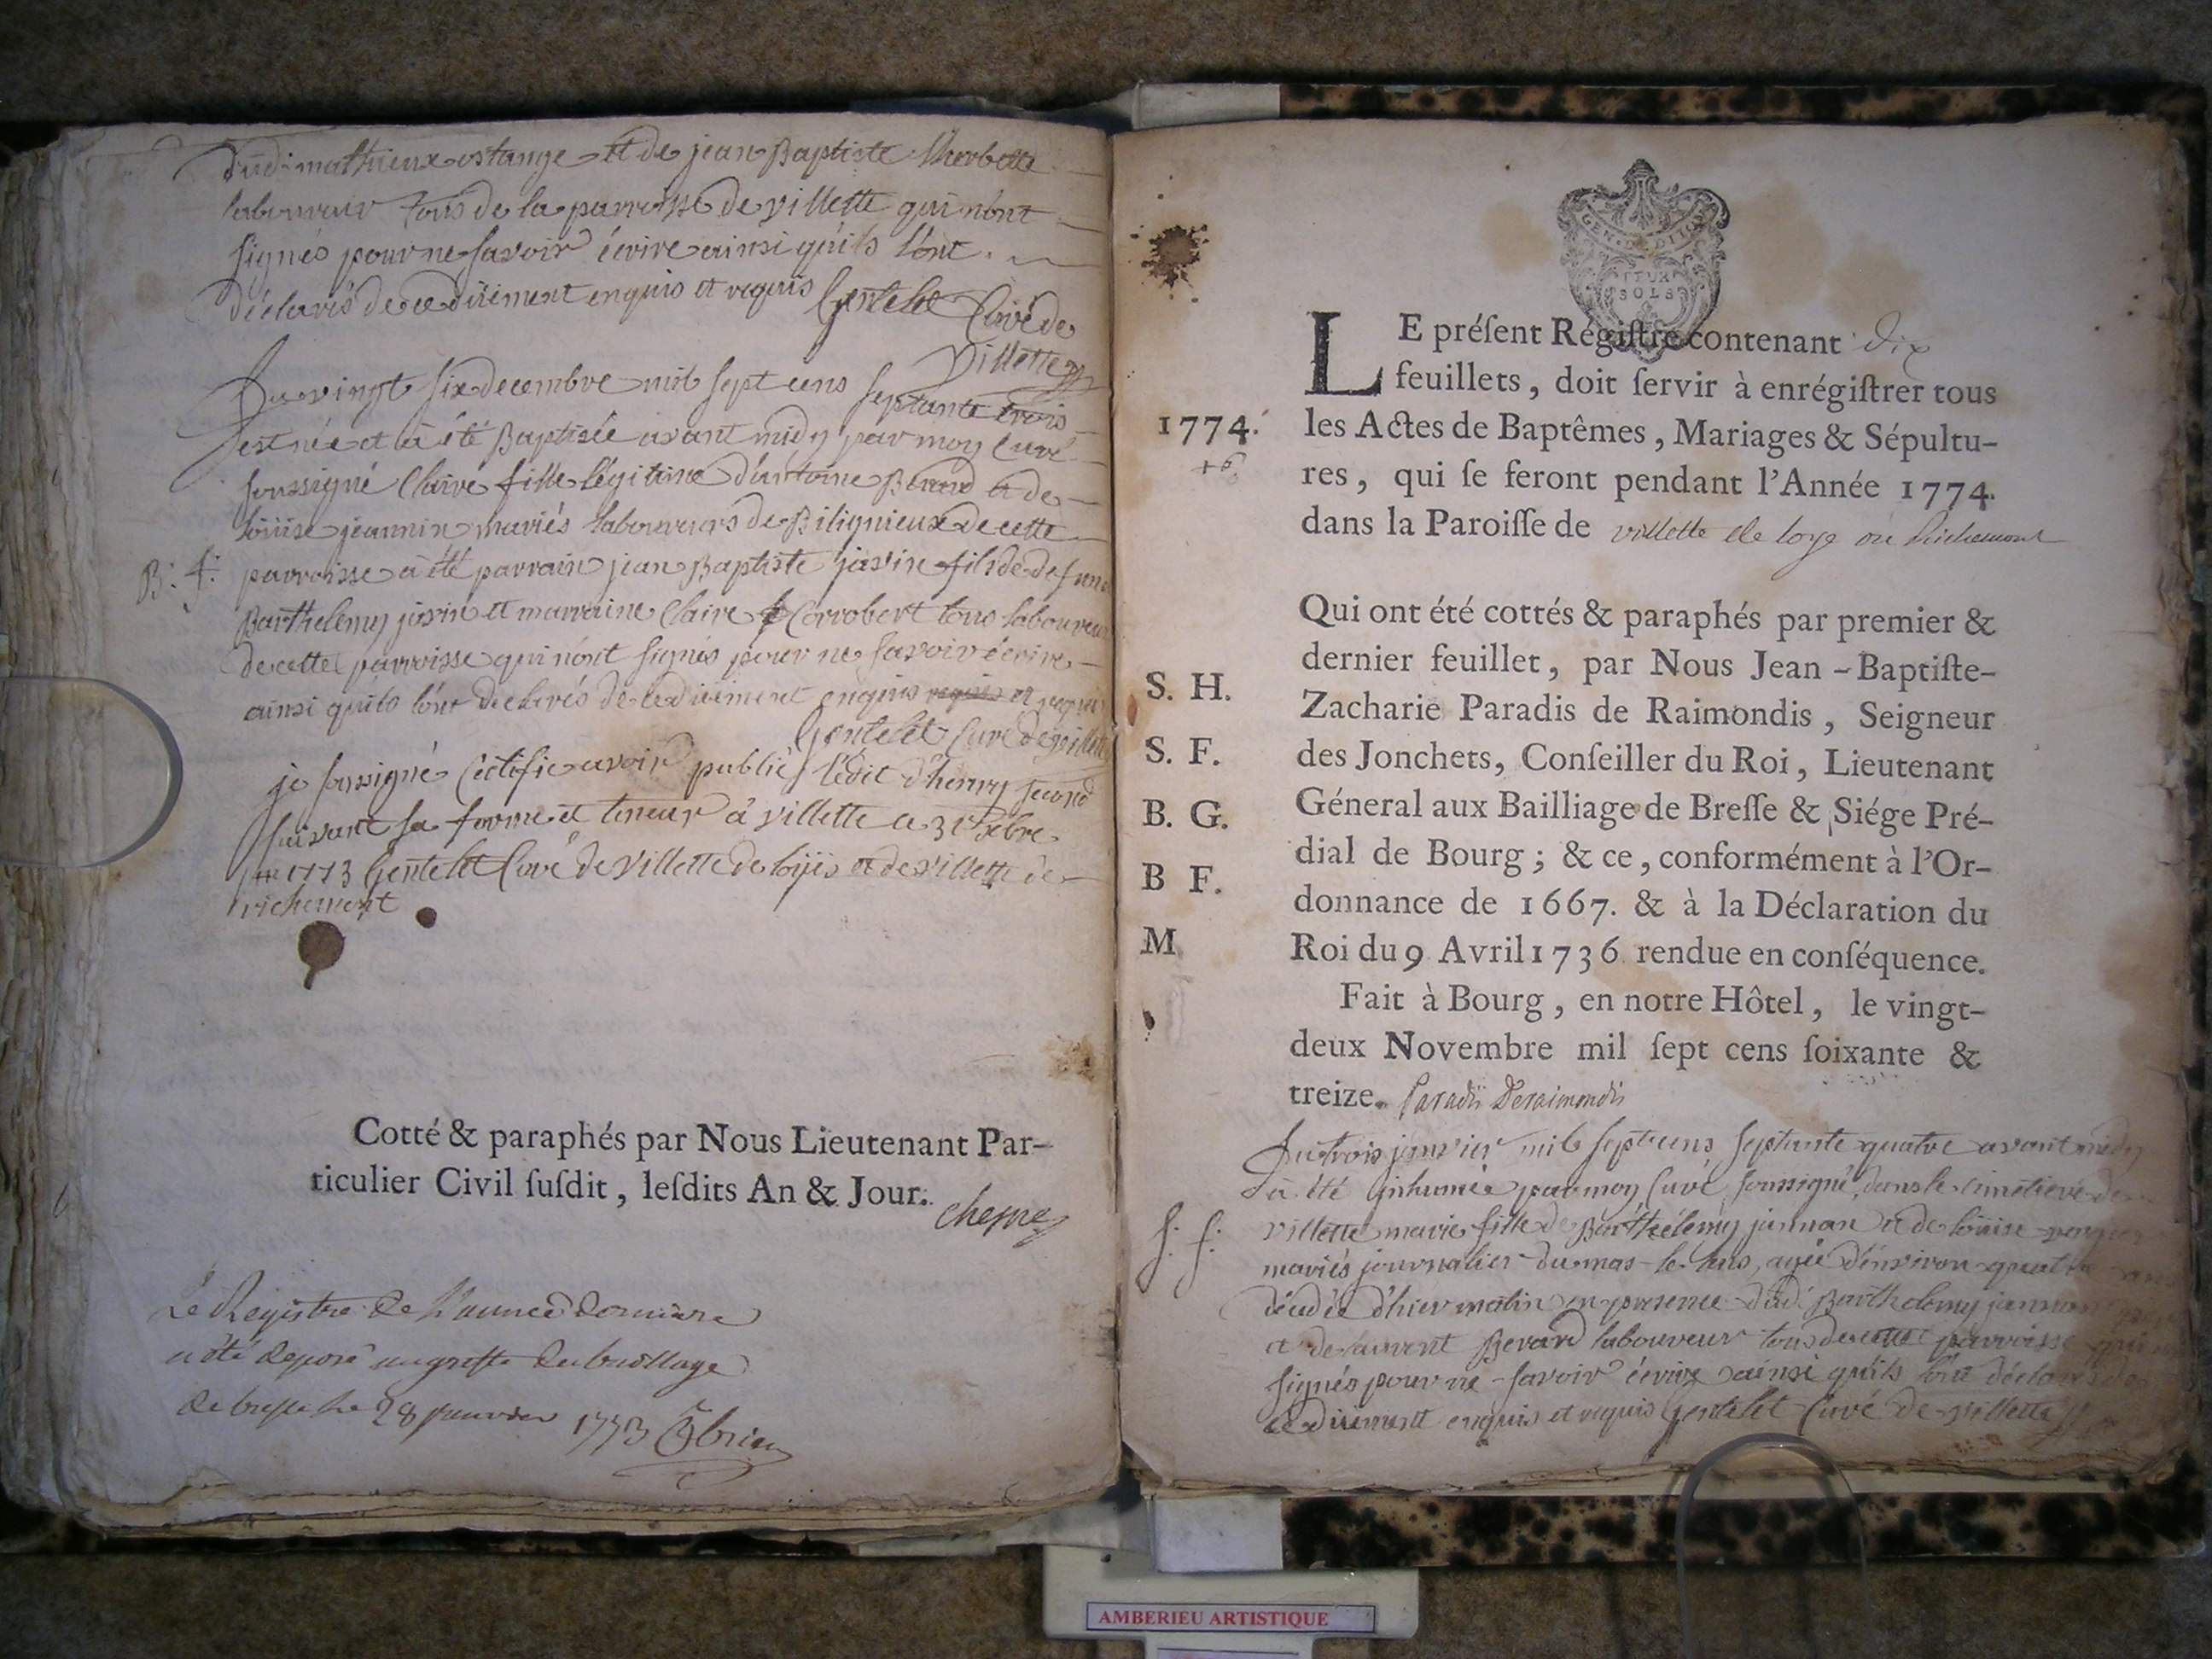 dud. mathieux estange et de jean Baptiste Sherbette
laboureur tous de la parroisse de villette qui n'ont
signés pour ne savoir écrire ainsi qu'ils l'ont
déclarés de ce düement enquis et requis Gentelet Curé de
villette
Du vingt six decembre mil sept cens septante trois
est née et à été Baptisée avant midy par moy Curé
soussigné Claire fille légitime d'antoine Berard et de
loüise jeannin mariés laboureurs de Biligneux de cette
B: f: parroisse a été parrain jean Baptiste jasvin fils de defunt
Barthelemy et marraine Claire Corrobert tous laboureurs
de cette parroisse qui n'ont signés pour ne savoir écrire
ainsi qu'ils l'ont déclarés de ce düement enquis et requis
Gentelet Curé de villette
je soussigné Certifie avoir publié l'édit d'henry second
suivant sa forme et teneur à villette ce 31 Xbre
1773 Gentelet Curé de villette de loyes et de villette de
richemont
Cotté & paraphés par Nous Lieutenant Par-
ticulier Civil ſuſdit, leſdits An & Jour.
Le Registre de L'année derniere
a été deposé au greffe du bailliage
de bresse le 28 janvier 1773
GEN. D DIJON
DEUX
SOLS
LE préſent Régiſtre contenant dix
feuillets, doit ſervir à enrégiſtrer tous
1774. les Actes de Baptêmes, Mariages & Sépultu-
res, qui ſe feront pendant l'Année 1774.
dans la Paroiſſe de villette de loye ou Richemont
Qui ont été cottés & paraphés par premier &
dernier feuillet, par Nous Jean-Baptiſte-
S. H. Zacharie Paradis de Raimondis, Seigneur
S. F. des Jonchets, Conſeiller du Roi, Lieutenant
B. G. Géneral aux Bailliage de Breſſe & Siége Pré-
dial de Bourg; & ce, conformément à l'Or-
B F. donnance de 1667. & à la Déclaration du
M Roi du 9 Avril 1736 rendue en conſéquence.
Fait à Bourg, en notre Hôtel, le vingt-
deux Novembre mil ſept cens ſoixante &
treize. Paradis Deraimondis
Du trois janvier mil sept cens septante quatre avant midy
à été inhumée par moy Curé soussigné, dans le cimetiere de
S: f: villette marie fille de Barthélémy jannan et de loüise
mariés journalier du mas le hus, agée d'environ quatre ans
décedée d'hier matin en presence dud. Barthelemy jannan
et de laurent Berard laboureur tous de cette parroisse qui
signés pour ne savoir écrire ainsi qu'ils l'ont déclarés de
ce düement enquis et requis Gentelet Curé de villette
AMBERIEU ARTISTIQUE